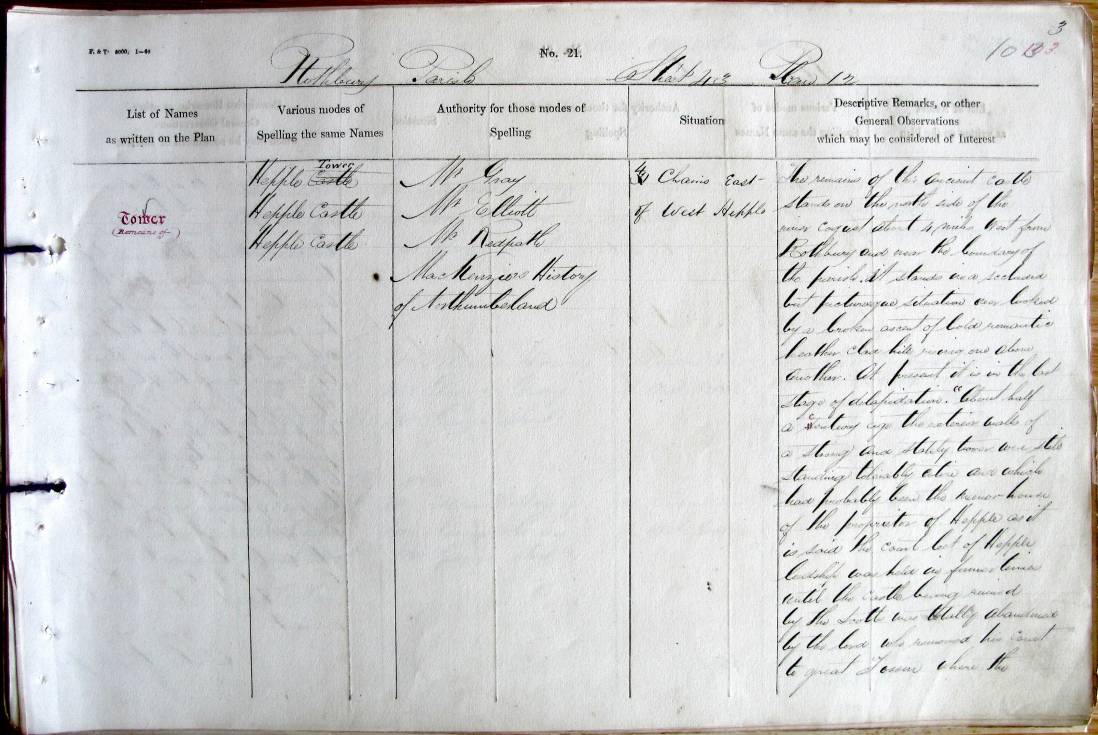 3
F. & T. 4000; 1—
No. 21.
10
Rothbury Parish Sheet 43 Plan 12
List of Names
as written on the Plan
Various modes of
Spelling the same Names
Authority for those modes of
Spelling
Situation
Descriptive Remarks, or other
General Observations
which may be considered of Interest
Tower
(Remains of)
Tower
Hepple Castle
Hepple Castle
Hepple Castle
Mr. Gray
Mr. Elliott
Mr. Redpath
MacKenzies History
of Northumberland
Chains East
of West Hepple
The remains of this ancient castle
stands on the north side of the
river Coquet about 4 miles West from
Rothbury and near the boundary of
the parish. it stands in a secluded
but picturesque situation over looked
by a broken ascent of bold romantic
heather clad hills rising one above
another. At present it is in the last
stage of delapidation. "About half
a century ago the exterior walls of
a strong and stately tower were still
standing tolerably entire and which
had probably been the manor house
of the proprietor of Hepple as it
is said the court leet of Hepple
lordship was held in former times
until the castle being ruined
by the Scotts was totally abandoned
by the lord who removed his court
to great Tosson where the